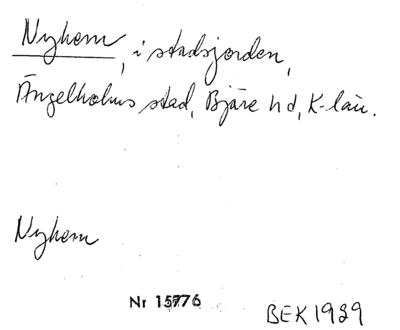 Nyhem, i stadsjorden,
Ängelholms stad, Bjäre hd, K-län.
Nyhem
Nr 15776
BEK 1939